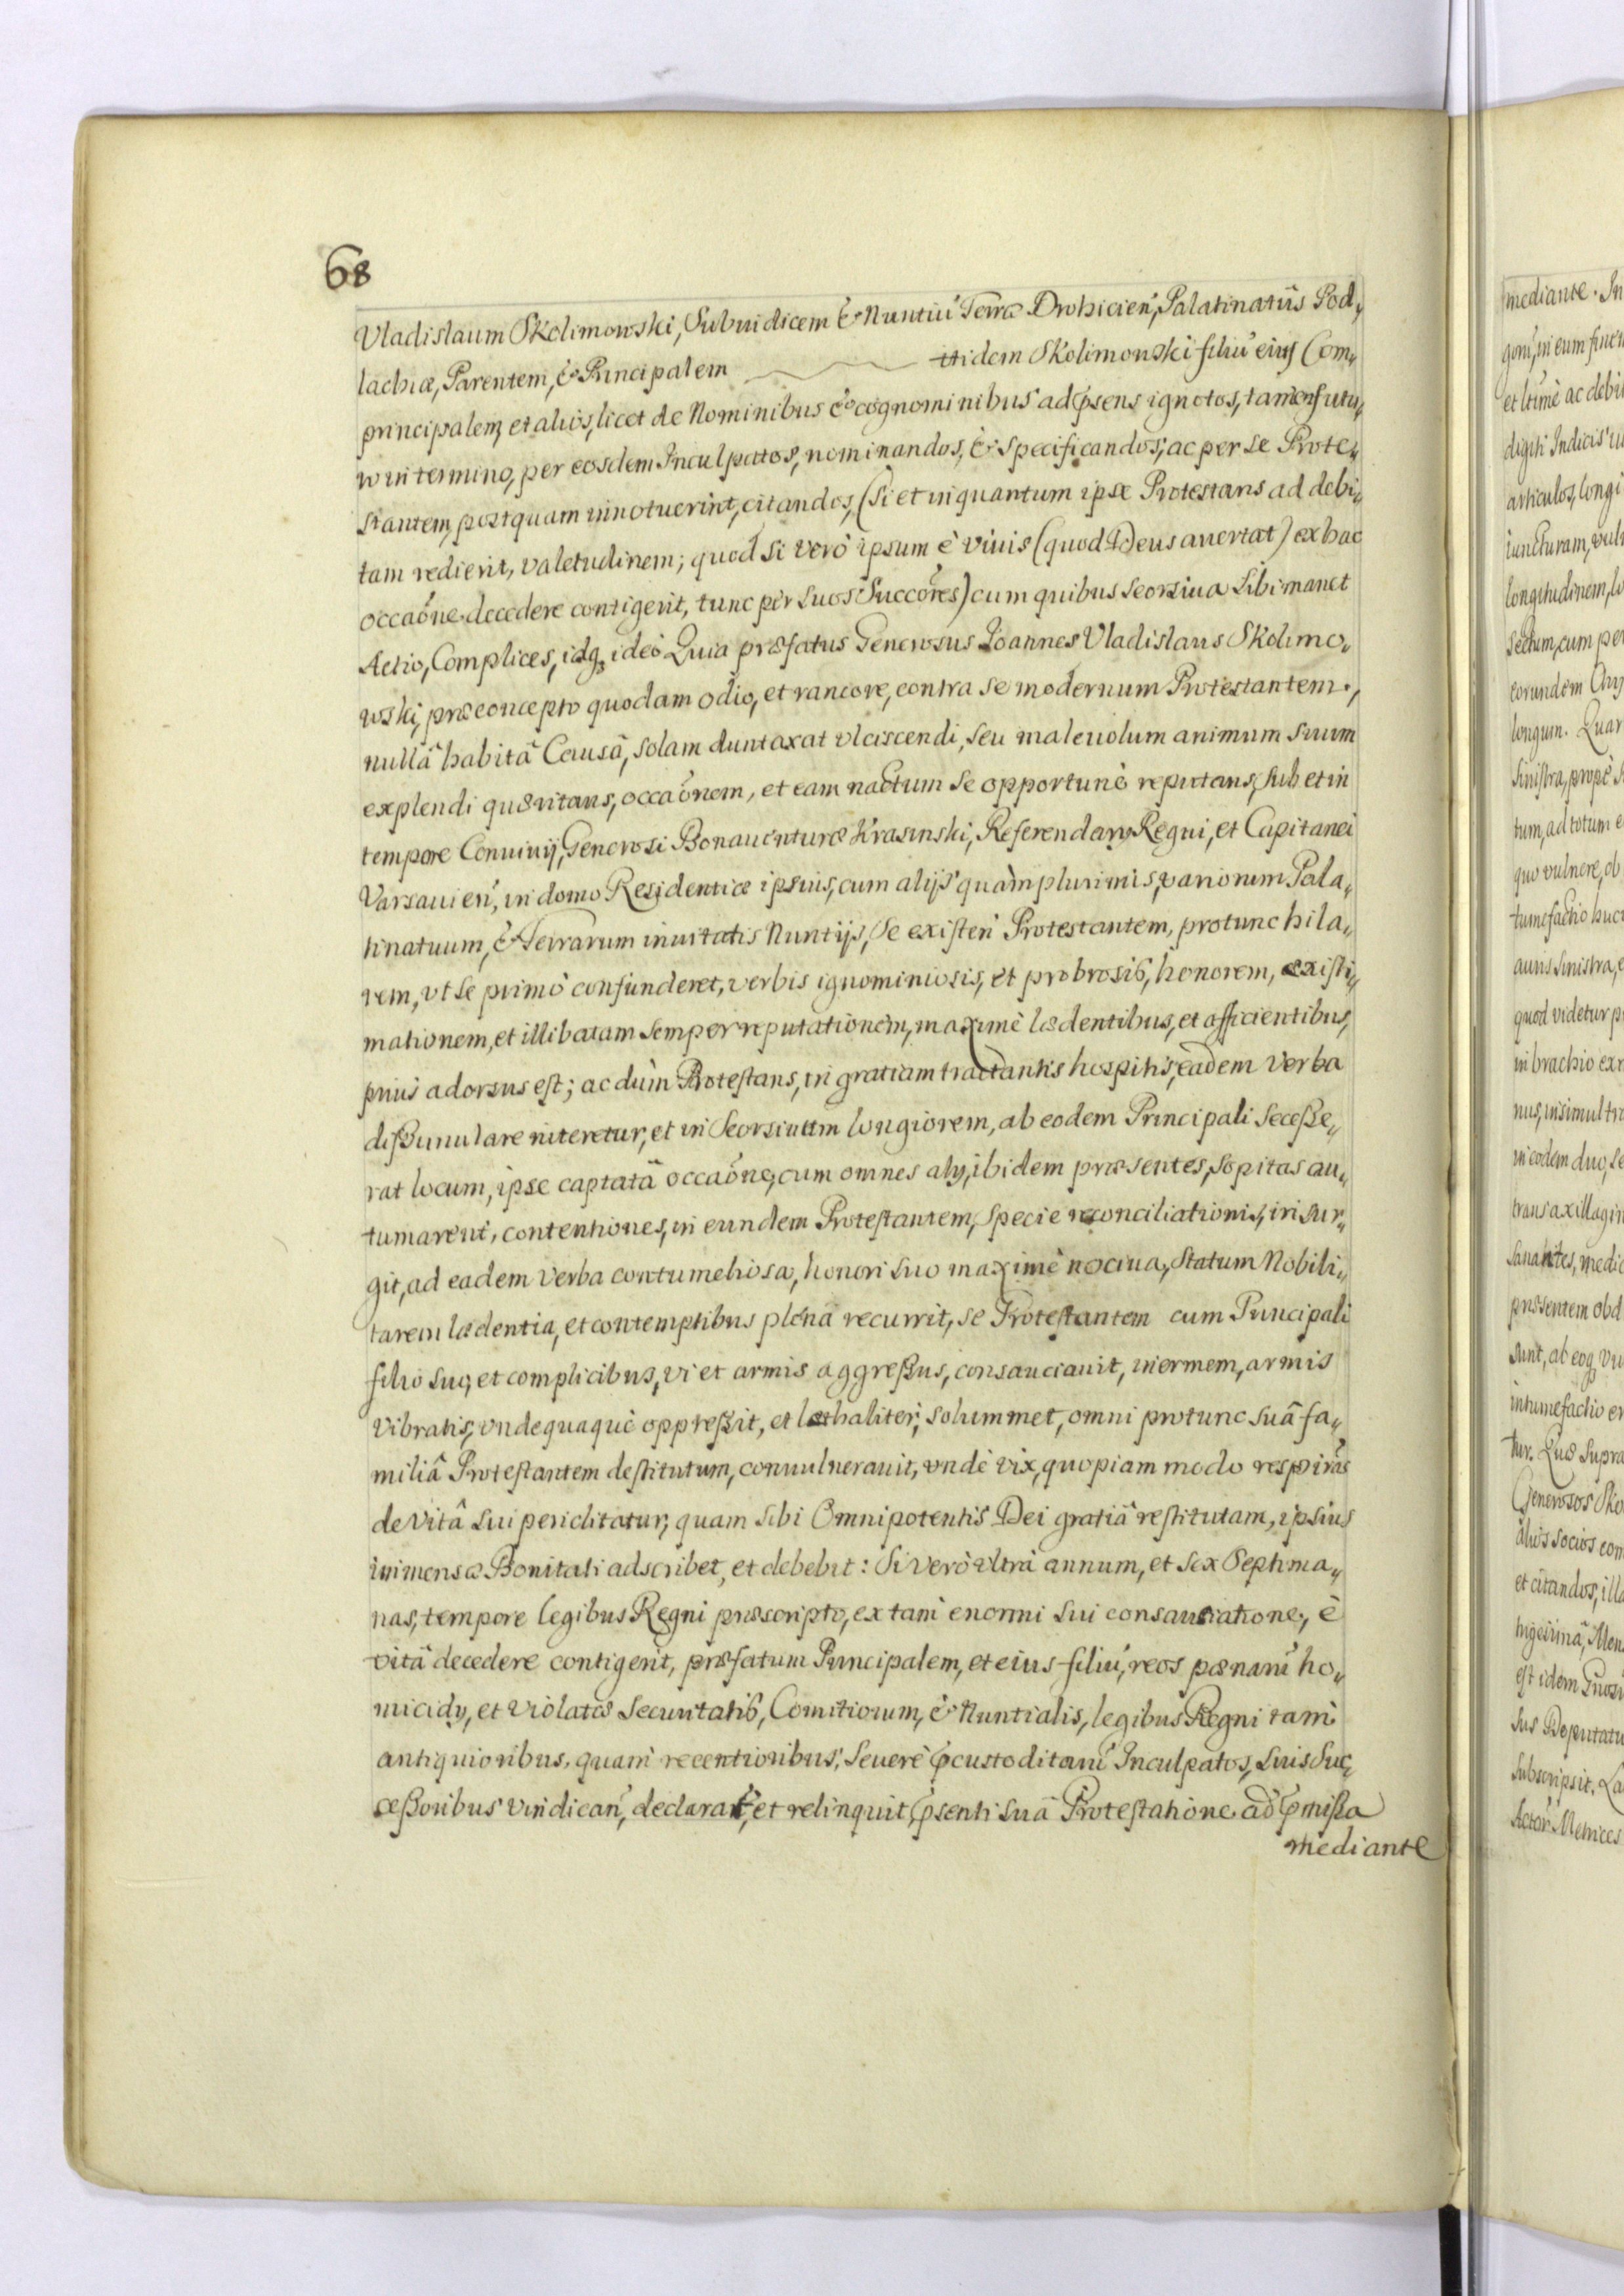 68
Vladislaum Skolimowski, Subiudicem & Nuntiū Terræ Drohicień, Palatinatûs Pod„
lachiæ, Parentem, & Principalem itidem Skolimowski filiū eius Com„
principalem, et alios, licet de Nominibus & cognominibus ad psens ignotos, tamen futu„
ro in termino, per eosdem Inculpatos, nominandos, & specificandos, ac per se Prote„
stantem, postquam innotuerint, citandos, (si et inquantum ipse Protestans ad debi„
tam redierit, valetudinem; quod si verò ipsum è viuis (quod Deus auertat) ex hac
occaōne decedere contigerit, tunc pèr suos Succōres) cum quibus seorsiua sibi manet
Actio, Complices, idq, ideò Quia præfatus Generosus Ioannes Vladislaus Skolimo„
wski, præconcepto quodam odio, et rancore, contra se modernum Protestantem,
nullâ habitâ Causâ, solam duntaxat vlciscendi, seu maleuolum animum suum
explendi quæritans, occaōnem, et eam nactum se opportunè reputans, sub et in
tempore Conuiuij, Generosi Bonauenturæ Krasinski, Referendarij Regni, et Capitanei
Varsauień, in domo Residentiæ ipsius, cum alijs quàm plurimis, variorum Pala„
tinatuum, & Terrarum inuitatis Nuntijs, Se existeń Protestantem, protunc hila„
rem, vt se primò confunderet, verbis ignominiosis, et probrosis, honorem, existi„
mationem, et illibatam semper reputationem, maximè lædentibus, et afficientibus,
priùs adorsus est; ac dùm Protestans, in gratiam tractantis hospitis, eadem verba
dißimulare niteretur, et in Seorsiuum longiorem, ab eodem Principali Seceße„
rat locum, ipse captatâ occaōne, cum omnes alij, ibidem præsentes, sopitas au„
tumarent, contentiones, in eundem Protestantem, specie reconciliationis, insur„
git, ad eadem verba contumeliosa, honori suo maximè nociua, Statum Nobili„
tarem lædentia, et contemptibus plena recurrit, se Protestantem cum Principali
filio suo, et complicibus, vi et armis aggreßus, consauciauit, inermem, armis
vibratis, vndequaquè oppreßit, et lethaliter, solummet, omni protunc suâ fa„
miliâ Protestantem destitutum, conuulnerauit, vndè vix, quopiam modo respirās
de vitâ sui periclitatur, quam sibi Omnipotentis Dei gratiâ restitutam, ipsius
immensæ Bonitati adscribet, et debebit: Si verò vltrà annum, et sex Septima„
nas, tempore legibus Regni præscripto, ex tam enormi sui consauciatione, è
vitâ decedere contigerit, præfatum Principalem, et eius filiū, reos pœnarū ho„
micidij, et violatæ Securitatis, Comitiorum, & Nuntialis, legibus Regni tam
antiquioribus, quam recentioribus, Seuerè pcustoditarū Inculpatos, suis Suc„
ceßoribus vindicań, declarat, et relinquit, psenti suâ Protestatione ad pmißa
mediante